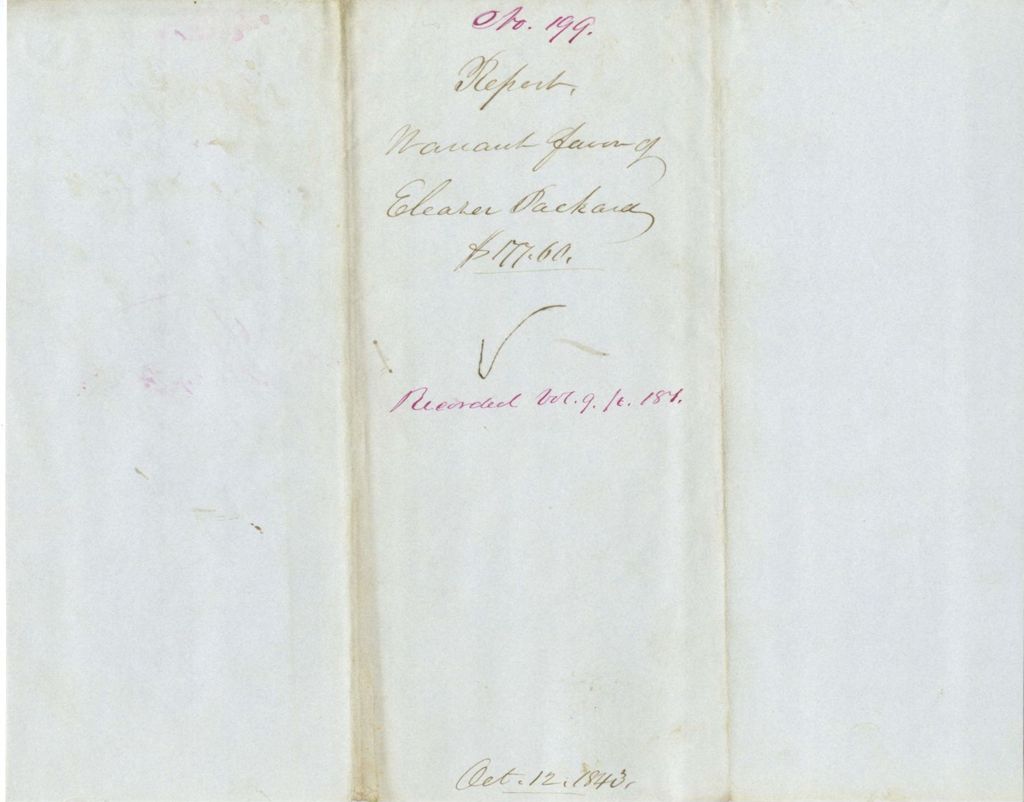 No. 199.
Report.
Warrant favor of
Eleazer Packard
$177.60.
Recorded Vol. 9. p. 187.
Oct. 12. 1843.